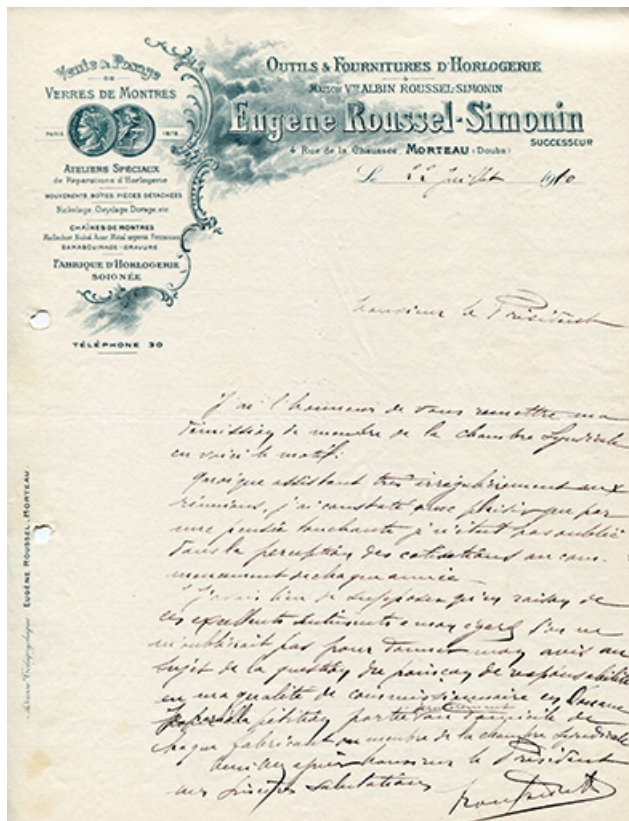 Vente & Posage
DE
VERRES DE MONTRES
PARIS 1878
ATELIERS SPÉCIAUX
de Réparations d'Horlogerie
MOUVEMENTS, BOÎTES, PIÈCES DÉTACHÉES
Nickelage, Oxydage, Dorage, etc.
CHAÎNES DE MONTRES
GRAVURE
FABRIQUE D'HORLOGERIE
SOIGNÉE
TÉLÉPHONE 30
OUTILS & FOURNITURES D'HORLOGERIE
MAISON VVE ALBIN ROUSSEL-SIMONIN
Eugène Roussel-Simonin
SUCCESSEUR
4 Rue de la Chaussée, MORTEAU (Doubs)
Le 22 Juillet 1910
Monsieur le Président
J'ai l'honneur de vous remettre ma
démission de membre de la chambre Syndicale
en voici le motif:
Quoique assistant très irrégulièrement aux
réunions, j'ai constaté avec plaisir que par
une pensée touchante je n'étais pas oublié
dans la perception des cotisations au com-
mencement de chaque année -
J'avais lieu de supposer qu'en raison de
ces excellents sentiments à mon égard l'on ne
m'oublierait pas pour donner mon avis au
sujet de la question du poinçon de responsabilité
en ma qualité de commissionnaire en Douane
pétition à domicile de
chaque fabricant ou membre de la chambre Syndicale
Monsieur le Président
mes sincères salutations
Adresse Télégraphique: EUGÈNE ROUSSEL, MORTEAU